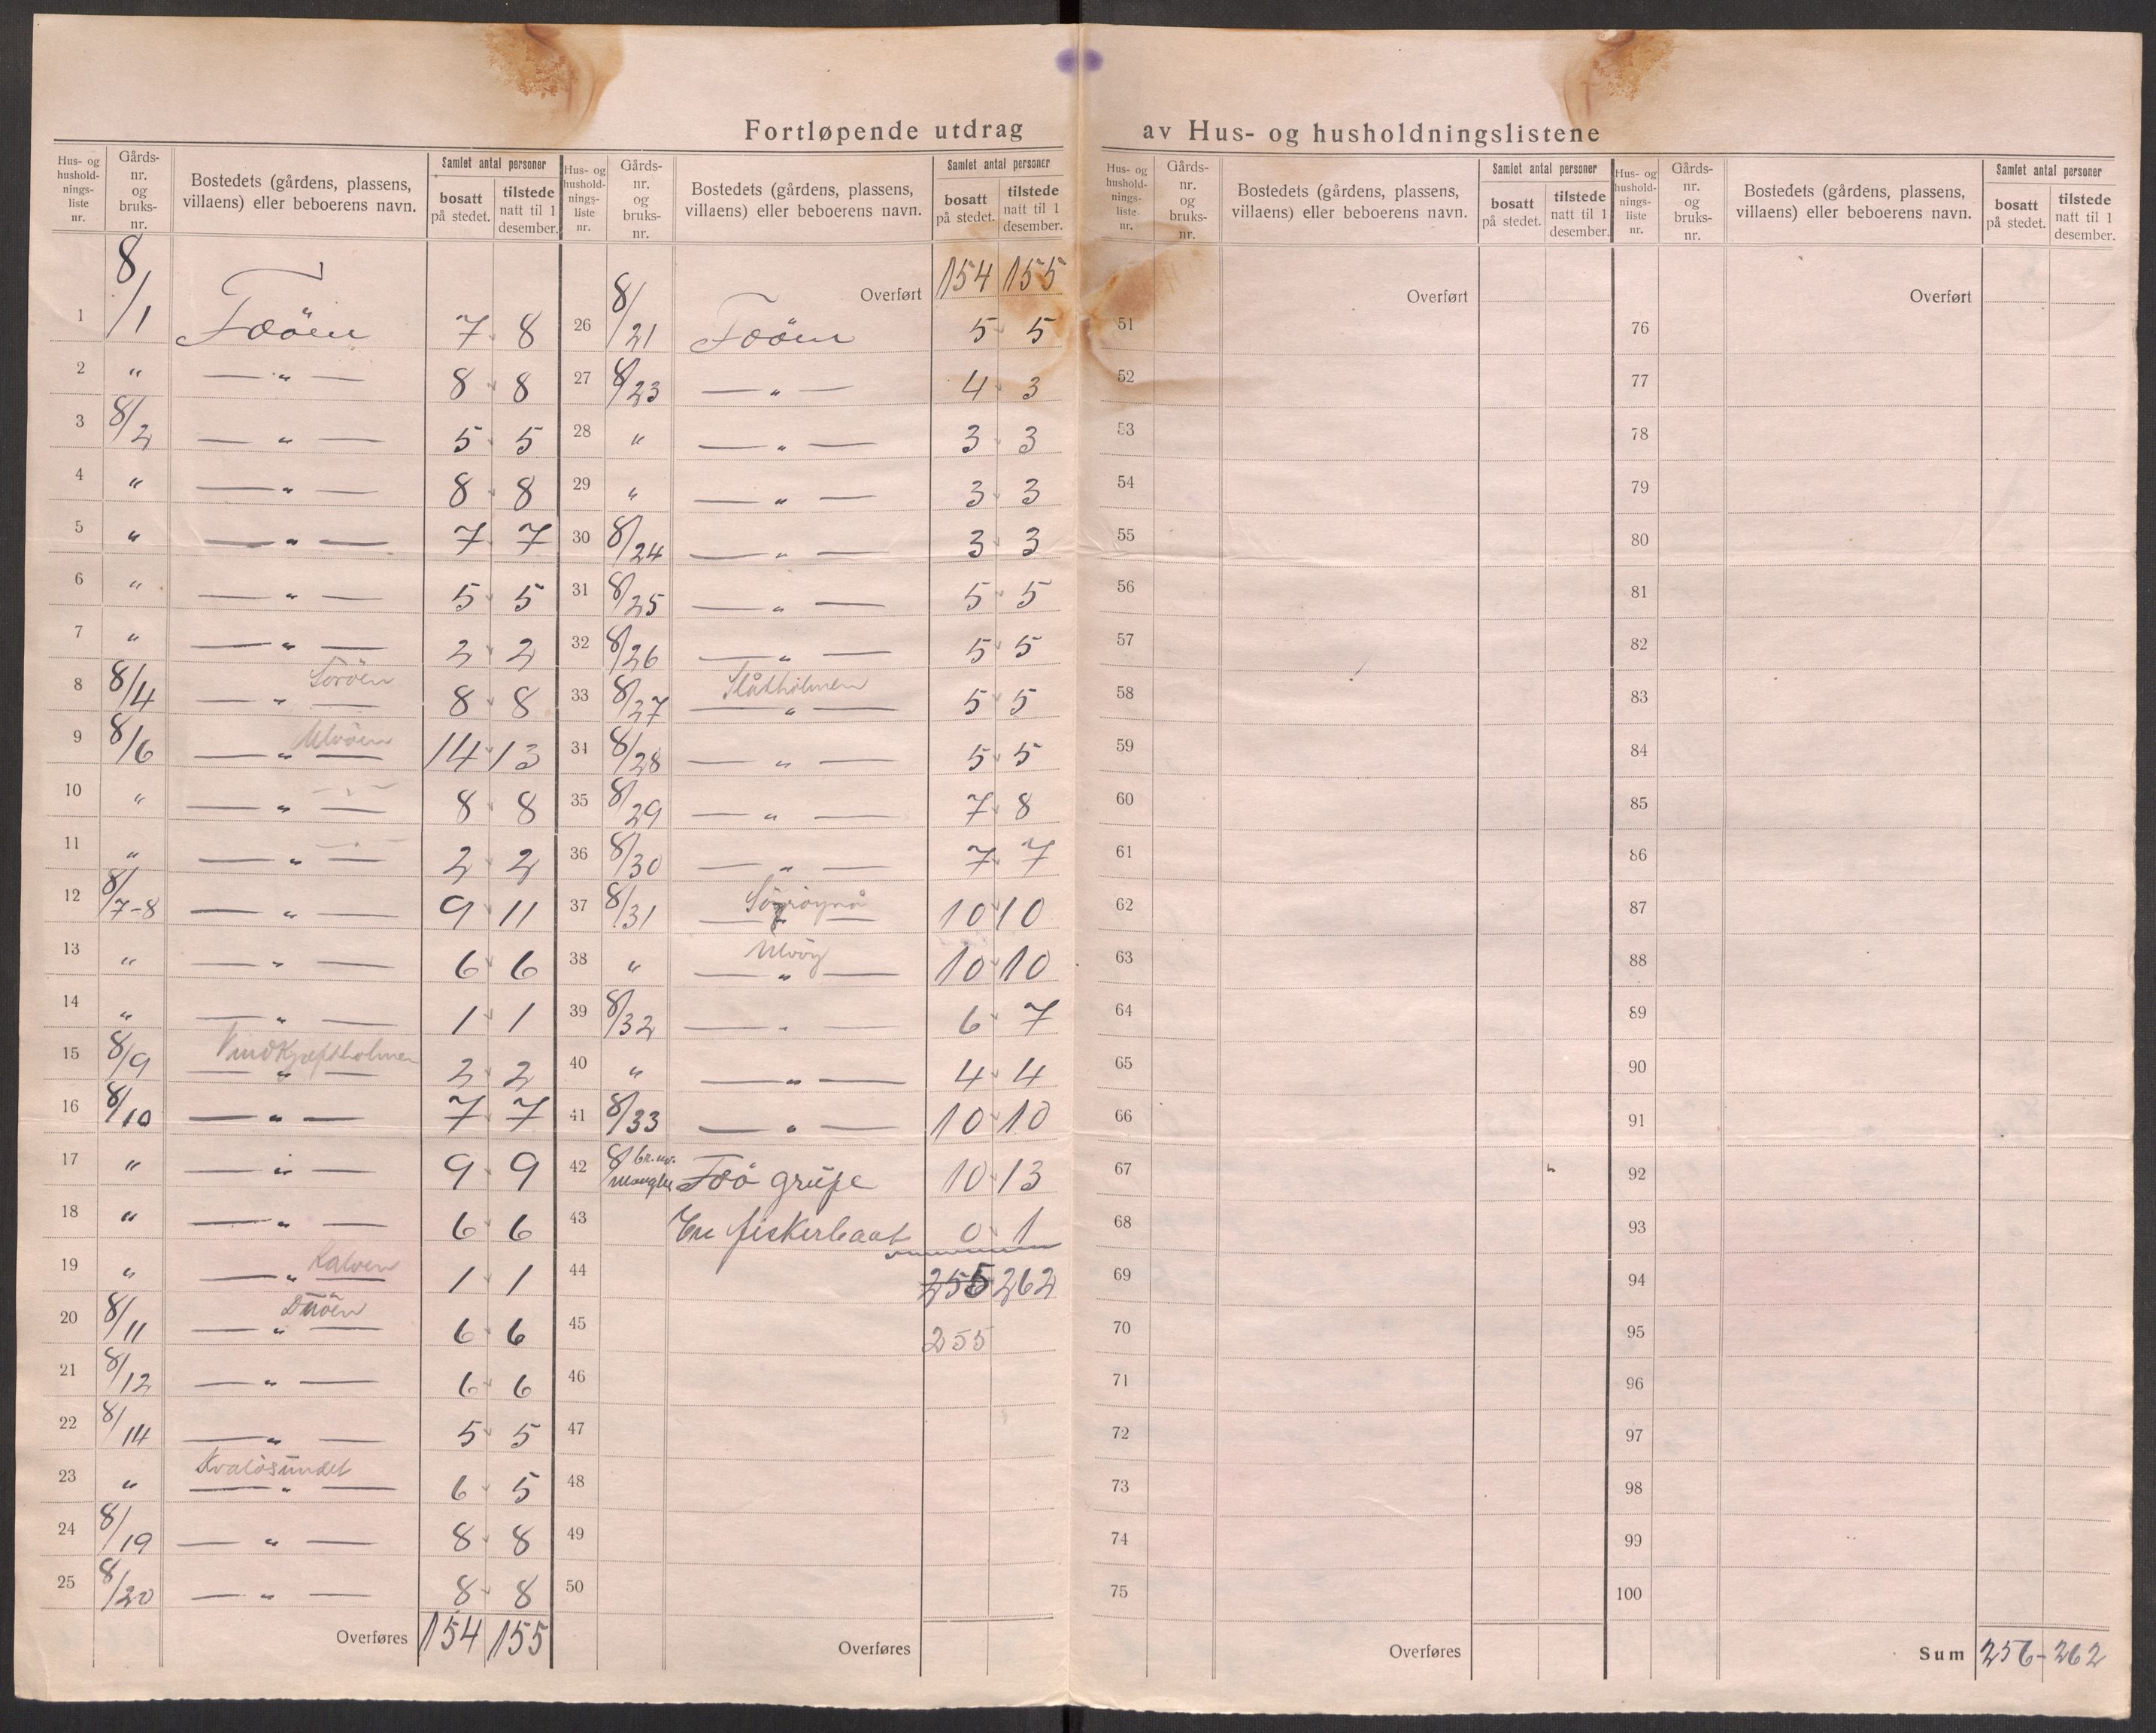 Fortløpende utdrag av Hus- og husholdningslistene
Hus- og husholdningsliste nr. | Gårds- nr. og bruks- nr. | Bostedets (gårdens, plassens, villaens) eller beboerens navn. | Samlet antal personer | bosatt på stedet. | tilstede natt til 1 desember.
1 8/1 Toöen 7 8
2 " — " — 8 8
3 8/2 — " — 5 5
4 " — " — 8 8
5 " — " — 7 7
6 " — " — 5 5
7 " — " — 2 2
8 8/4 — " — Söröen 8 8
9 8/6 — " — Ulvöen 14 13
10 " — " — 8 8
11 " — " — 2 2
12 8/7-8 — " — 9 11
13 " — " — 6 6
14 " — " — 1 1
15 8/9 — " — 2 2
16 8/10 — " — 7 7
17 " — " — 9 9
18 " — " — 6 6
19 " — " — Kalven 1 1
20 8/11 — " — 6 6
21 8/12 — " — 6 6
22 8/14 — " — 5 5
23 " Kvalösundet — " — 6 5
24 8/19 — " — 8 8
25 8/20 — " — 8 8
Overføres 154 155
Hus- og husholdningsliste nr. | Gårds- nr. og bruks- nr. | Bostedets (gårdens, plassens, villaens) eller beboerens navn. | Samlet antal personer | bosatt på stedet. | tilstede natt til 1 desember.
Overført 154 155
26 8/21 Toöen 5 5
27 8/23 — " — 4 3
28 " — " — 3 3
29 " — " — 3 3
30 8/24 — " — 3 3
31 8/25 — " — 5 5
32 8/26 — " — 5 5
33 8/27 Slåtholmen — " — 5 5
34 8/28 — " — 5 5
35 8/29 — " — 7 8
36 8/30 — " — 7 7
37 8/31 — " — 10 10
38 " Ulvöy — " — 10 10
39 8/32 — " — 6 7
40 " — " — 4 4
41 8/33 — " — 10 10
42 8 br.nr. mangler Toö grupe 10 13
43 En fiskerbaat 0 1
44 255 262
45 255
46
47
48
49
50
Overføres
Hus- og husholdningsliste nr. | Gårds- nr. og bruks- nr. | Bostedets (gårdens, plassens, villaens) eller beboerens navn. | Samlet antal personer | bosatt på stedet. | tilstede natt til 1 desember.
Overført
51
52
53
54
55
56
57
58
59
60
61
62
63
64
65
66
67
68
69
70
71
72
73
74
75
Overføres
Hus- og husholdningsliste nr. | Gårds- nr. og bruks- nr. | Bostedets (gårdens, plassens, villaens) eller beboerens navn. | Samlet antal personer | bosatt på stedet. | tilstede natt til 1 desember.
Overført
76
77
78
79
80
81
82
83
84
85
86
87
88
89
90
91
92
93
94
95
96
97
98
99
100
Sum 256 - 262